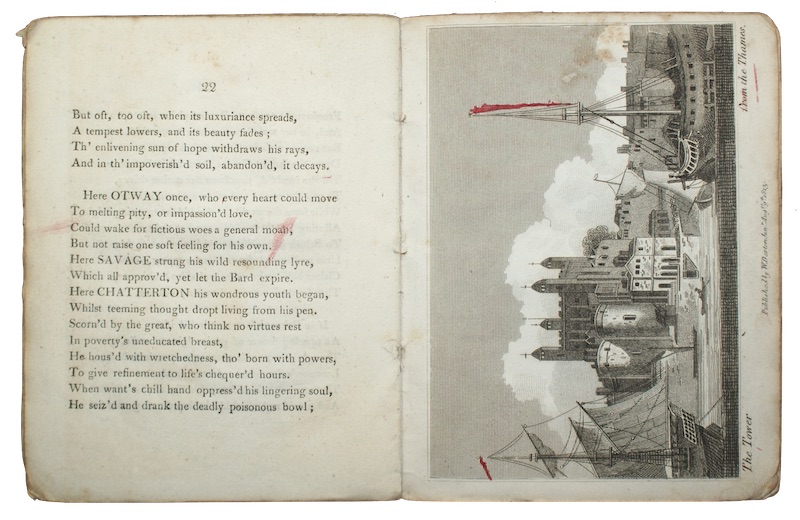 22
But oft, too oft, when its luxuriance spreads,
A tempest lowers, and its beauty fades ;
Th' enlivening sun of hope withdraws his rays,
And in th' impoverish'd soil, abandon'd, it decays.
Here OTWAY once, who every heart could move
To melting pity, or impassion'd love,
Could wake for fictious woes a general moan,
But not raise one soft feeling for his own.
Here SAVAGE strung his wild resounding lyre,
Which all approv'd, yet let the Bard expire.
Here CHATTERTON his wondrous youth began,
Whilst teeming thought dropt living from his pen.
Scorn'd by the great, who think no virtues rest
In poverty's uneducated breast,
He hous'd with wretchedness, tho' born with powers,
To give refinement to life's chequer'd hours.
When want's chill hand oppress'd his lingering soul,
He seiz'd and drank the deadly poisonous bowl ;
The Tower
from the Thames.
Published by W. Darton